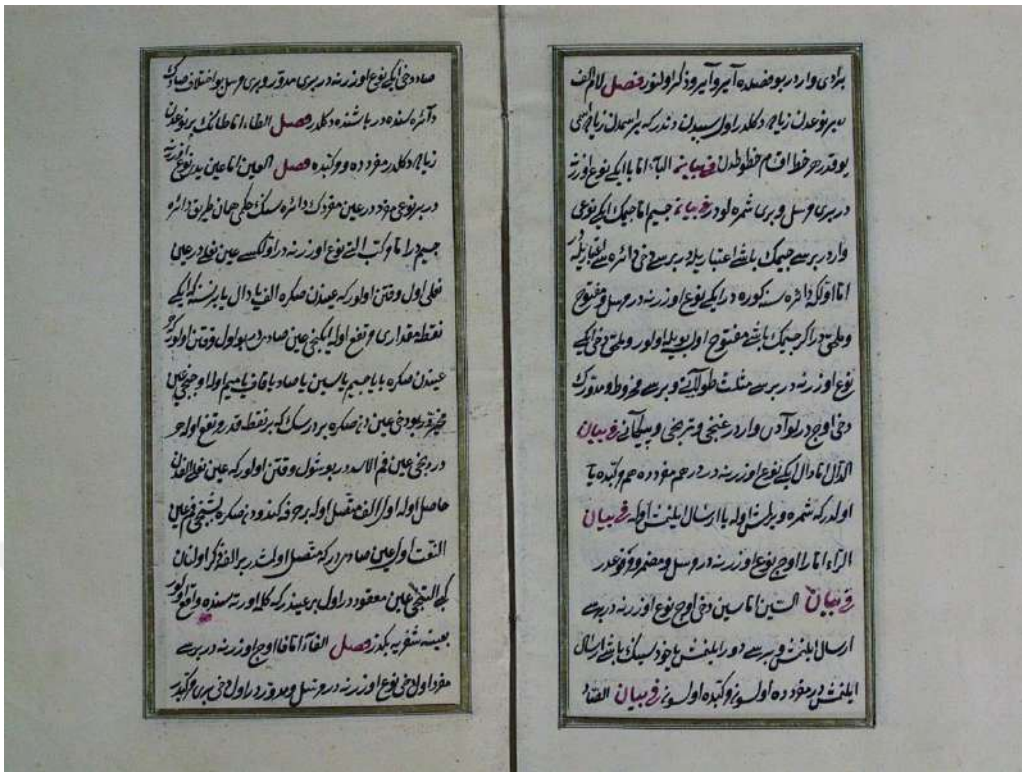 یردی واردر بو فصلده آیرو آیرو ذکر اولنور فصل لام الف
بر نوعدن زیاده دکلدر اول سببدن دندر که بر اسمدن زیاده اسمی
یوقدر هر خط اقسام خطوطدن فی بیان الباء اما با ایکی نوع اوزرنه
در بری مرسل و بری شمره لودر فی بیان جیم اما جیمک ایکی نوعی
واردر برسی جیمک باشی اعتباریله در برسی دخی دائره سی اعتباریله در
اما اولکه دائره سنه کوره در ایکی نوع اوزرنه در مرسل و مفتوح
اکر جیمک باشی مفتوح اول بویله اولور دخی ایکی
نوع اوزرنه در برسی مثلث طولانی و برسی مخروط و مدورک
دخی اوج در لو آدی واردر
فی بیان
الدال اما دال ایکی نوع اوزرنه در هم مفرده هم مرکبده یا
اولدر که شمره ویرلمش اوله یا ارسال ایلنمش اوله فی بیان
الراء اما را اوج نوع اوزرنه در مرسل و مضمر و موقوعدر
فی بیان السین اما سین دخی اوج نوع اوزرنه در برسی
ارسال ایلنمش و برسی دور ایلنمش یا خود سینک باشی ارسال
ایلنمش در مفرده اولسون مرکبده اولسون فی بیان الصاد
صاد دخی ایکی نوع اوزرنه در بری مدور و بری مرسل بو اختلاف صادک
دائره سنده در باشنده دکلدر فصل الطاء اما طانک بر نوعدن
زیاده دکلدر مفرده و مرکبده فصل العین اما عین یدی نوع اوزرنه
در بر نوعی مفرد در عین مفردک دائره سنک حکمی همان طریق دائره
جیم در اما مرکب التی نوع اوزرنه در اولکسی عین نعلیدر عین
نعلی اول وقتن اولور که عیندن صکره الف یا دال یا بر نسنه که ایکی
نقطه مقداری مرتفع اوله ایکنجی عین صادیدر بو اول وقتن اولور که
عیندن صکره با یا جیم یا سین یا صاد یا قاف یا میم اولا اوجنجی عین
بو دخی عین دن صکره بر در سک که بر نقطه قدر مرتفع اوله
دردنجی عین فم الاسد در بو شول وقتن اولور که عین نعلی الفدن
حاصل اوله اول الف متصل اوله بر حرفه کندودن صکره بشنجی فم عین
اول عین صادیدر که متصل اولمشدر بر الفه ذکر اولنان
کبی التنجی عین معقوددر اول بر عیندر که کلمه اورته سنده واقع اولور
بعینه شفریه بکزر فصل الفاء اما فا اوج اوزرنه در برسی
مفرد اول دخی نوع اوزرنه در مرسل و مدور در اول دخی بری مرکبدر